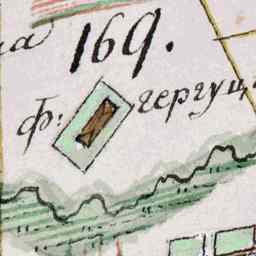 169.
ф: чергуц